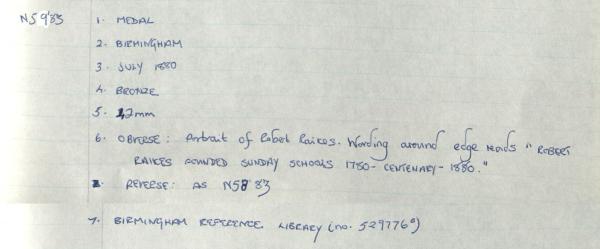 N59'83 1. MEDAL
2. BIRMINGHAM
3. JULY 1880
4. BRONZE
5. 42mm
6. OBVERSE: Portrait of Robert Raikes. Wording around edge reads "ROBERT
RAIKES FOUNDED SUNDAY SCHOOLS 1780 - CENTENARY - 1880."
REVERSE: AS N58'83
7. BIRMINGHAM REFERENCE LIBRARY (no. 529776)